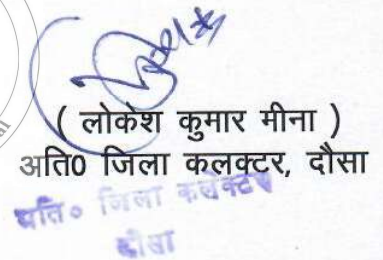 ( लोकेश कुमार मीना )
अति0 जिला कलक्टर, दौसा
अति० जिला कलेक्टर
दौसा